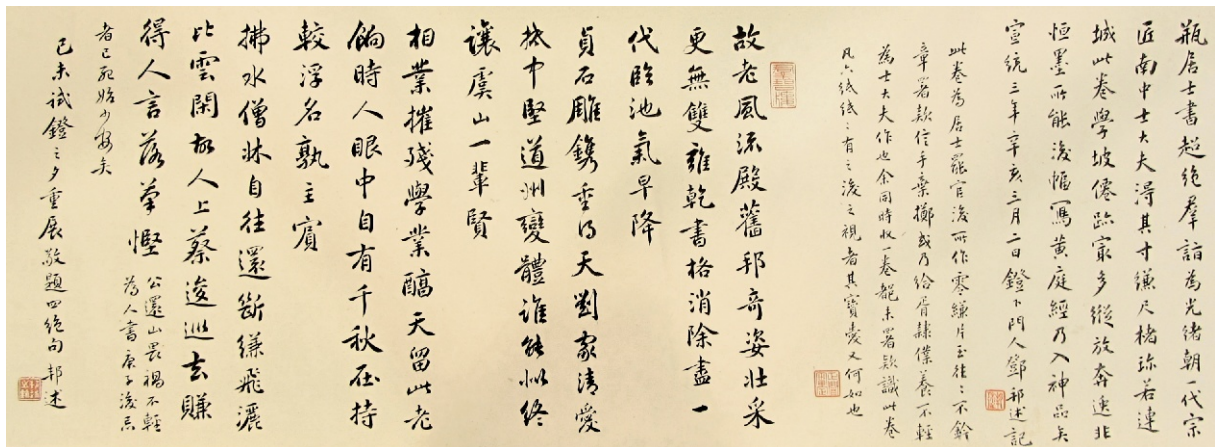 瓶居士書超絕羣詣為光緒朝一代宗
匠南中士大夫得其寸縑尺楮珍若連
城此卷學坡僊跡冣多縱放奔逸非
恒墨所能後幅寫黃庭經乃入神品矣
宣統三年辛亥三月二日鐙下門人鄧邦述記
此卷為居士罷官後所作零縑片玉往〻不鈐
章署款信手棄擲或乃給胥隸僕養不輕
為士大夫作也余同時收一卷都未署款識此卷
凡六紙紙〻有之後之視者其寶愛又何如也
故老風流殿舊邦奇姿壯采
更無雙雞乾書格消除盡一
代臨池氣早降
貞石雕鎸重得天劉家清愛
抵中堅道州變體誰能似終
讓虞山一輩賢
相業摧殘學業醇天留此老
餉時人眼中自有千秋在持
較浮名孰主賓
拂水僧牀自往還斷縑飛灑
比雲閒故人上蔡逡巡去賺
得人言落筆慳
公還山畏禍不輕
為人書庚子後忌
者已死始少安矣
己未試鐙之夕重展敬題四絕句邦述